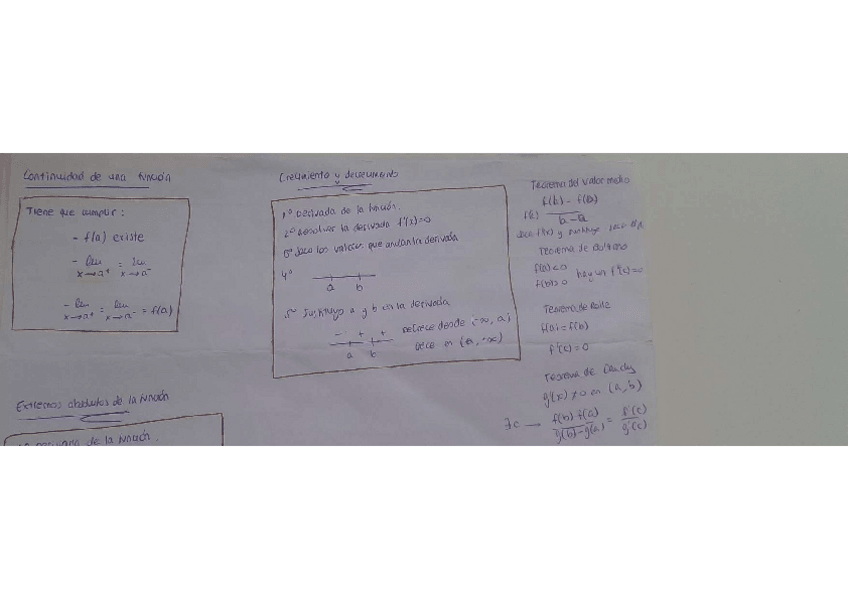 Continuidad de una función
Tiene que cumplir:
- f(a) existe
- lim x→a⁺ = lim x→a⁻
- lim x→a⁺ = lim x→a⁻ = f(a)
Extremos absolutos de la función
derivada de la función.
Crecimiento y decrecimiento
1º Derivada de la función.
2º Resolver la derivada f'(x)=0
3º Saco los valores que anulan la derivada
4º
a b
5º Sustituyo a y b en la derivada
- + +
a b
decrece desde (-∞, a)
crece en (a, -∞)
Teorema del valor medio
f(b) - f(a)
f'(c)
b - a
saco f'(x) y sustituyo
Teorema de Bolzano
f(a)<0
f(b)>0 hay un f'(c)=0
Teorema de Rolle
f(a) = f(b)
f'(c) = 0
Teorema de Cauchy
g'(x) ≠ 0 en (a, b)
∃c → f(b) f(a) / g(b)-g(a) = f'(c) / g'(c)